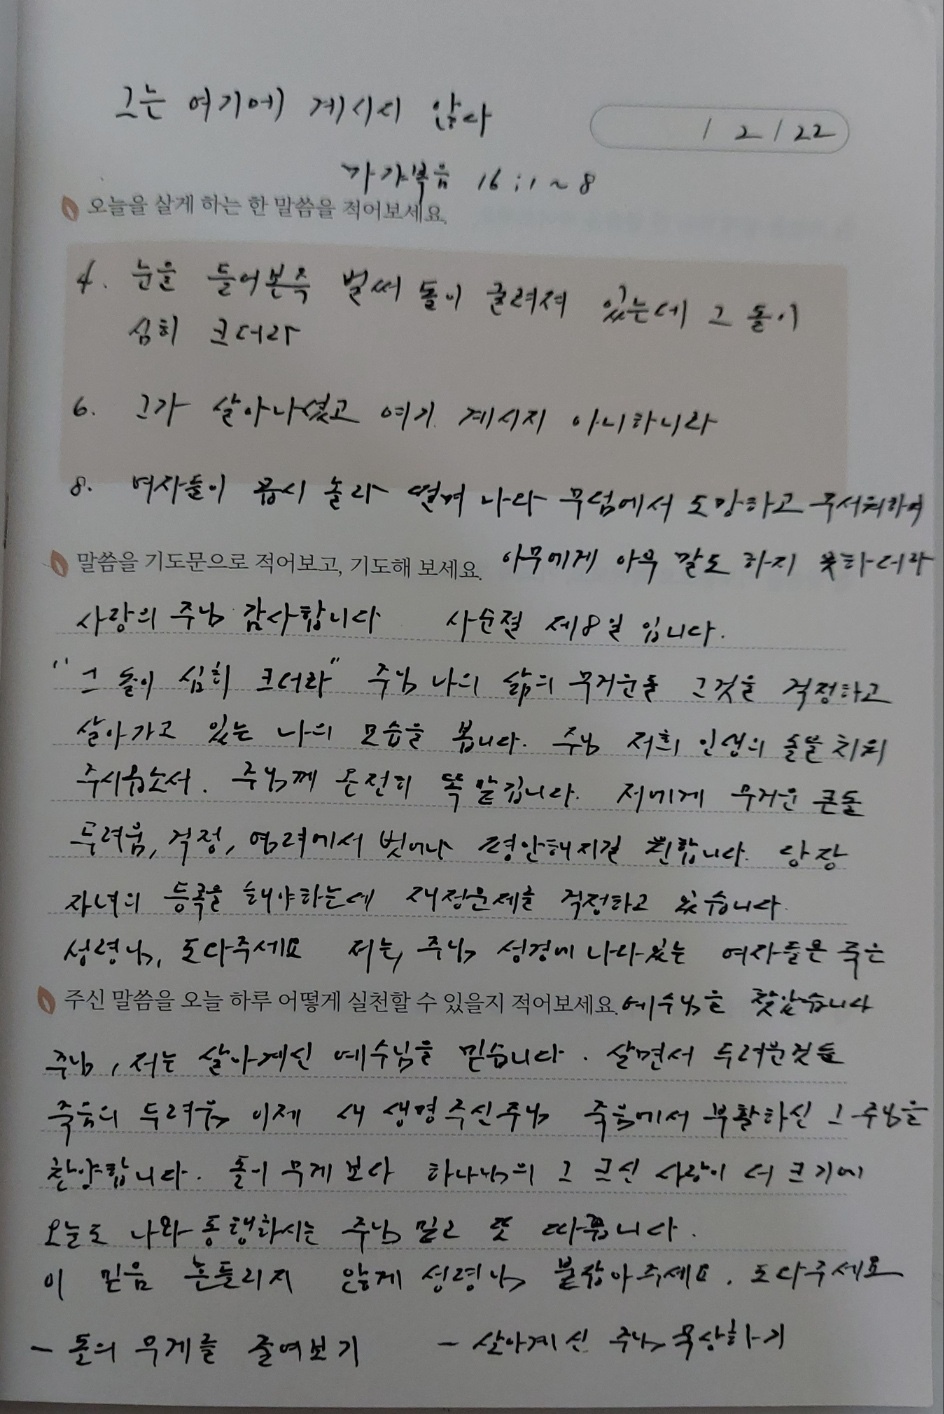 그는 여기에 계시지 않다
1 2 / 22
마가복음 16:1~8
오늘을 살게 하는 한 말씀을 적어보세요.
4. 눈을 들어본즉 벌써 돌이 굴려져 있는데 그 돌이
심히 크더라
6. 그가 살아나셨고 여기 계시지 아니하니라
8. 여자들이 몹시 놀라 떨며 나와 무덤에서 도망하고 무서워하여
아무에게 아무 말도 하지 못하더라
말씀을 기도문으로 적어보고, 기도해 보세요.
사랑의 주님 감사합니다 사순절 제8일 입니다.
"그 돌이 심히 크더라" 주님 나의 삶의 무거운돌 그것을 걱정하고
살아가고 있는 나의 모습을 봅니다. 주님 저희 인생의 돌을 치워
주시옵소서. 주님께 온전히 맡깁니다. 저에게 무거운 큰돌
두려움, 걱정, 염려에서 벗어나 평안해지길 원합니다. 당장
자녀의 등록을 해야하는데 재정문제를 걱정하고 있습니다
성령님, 도와주세요 저는, 주님 성경에 나와있는 여자들은 죽은
주신 말씀을 오늘 하루 어떻게 실천할 수 있을지 적어보세요.
예수님을 찾았습니다
주님, 저는 살아계신 예수님을 믿습니다. 살면서 두려운것들
죽음의 두려움 이제 새 생명주신주님 죽음에서 부활하신 그 주님을
찬양합니다. 돌의 무게 보다 하나님의 그 크신 사랑이 더 크기에
오늘도 나와 동행하시는 주님 믿고 또 따릅니다.
이 믿음 흔들리지 않게 성령님 붙잡아주세요. 도와주세요
- 돌의 무게를 줄여보기 - 살아계신 주님 묵상하기